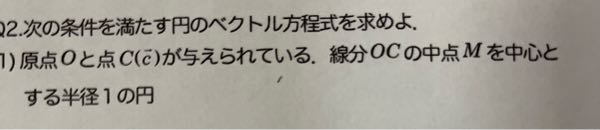 Q2.次の条件を満たす円のベクトル方程式を求めよ.
1)原点Oと点C(c⃗)が与えられている.線分OCの中点Mを中心と
する半径1の円